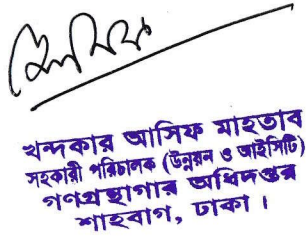 আসিফ
খন্দকার আসিফ মাহতাব
সহকারী পরিচালক (উন্নয়ন ও আইসিটি)
গণগ্রন্থাগার অধিদপ্তর
শাহবাগ, ঢাকা।